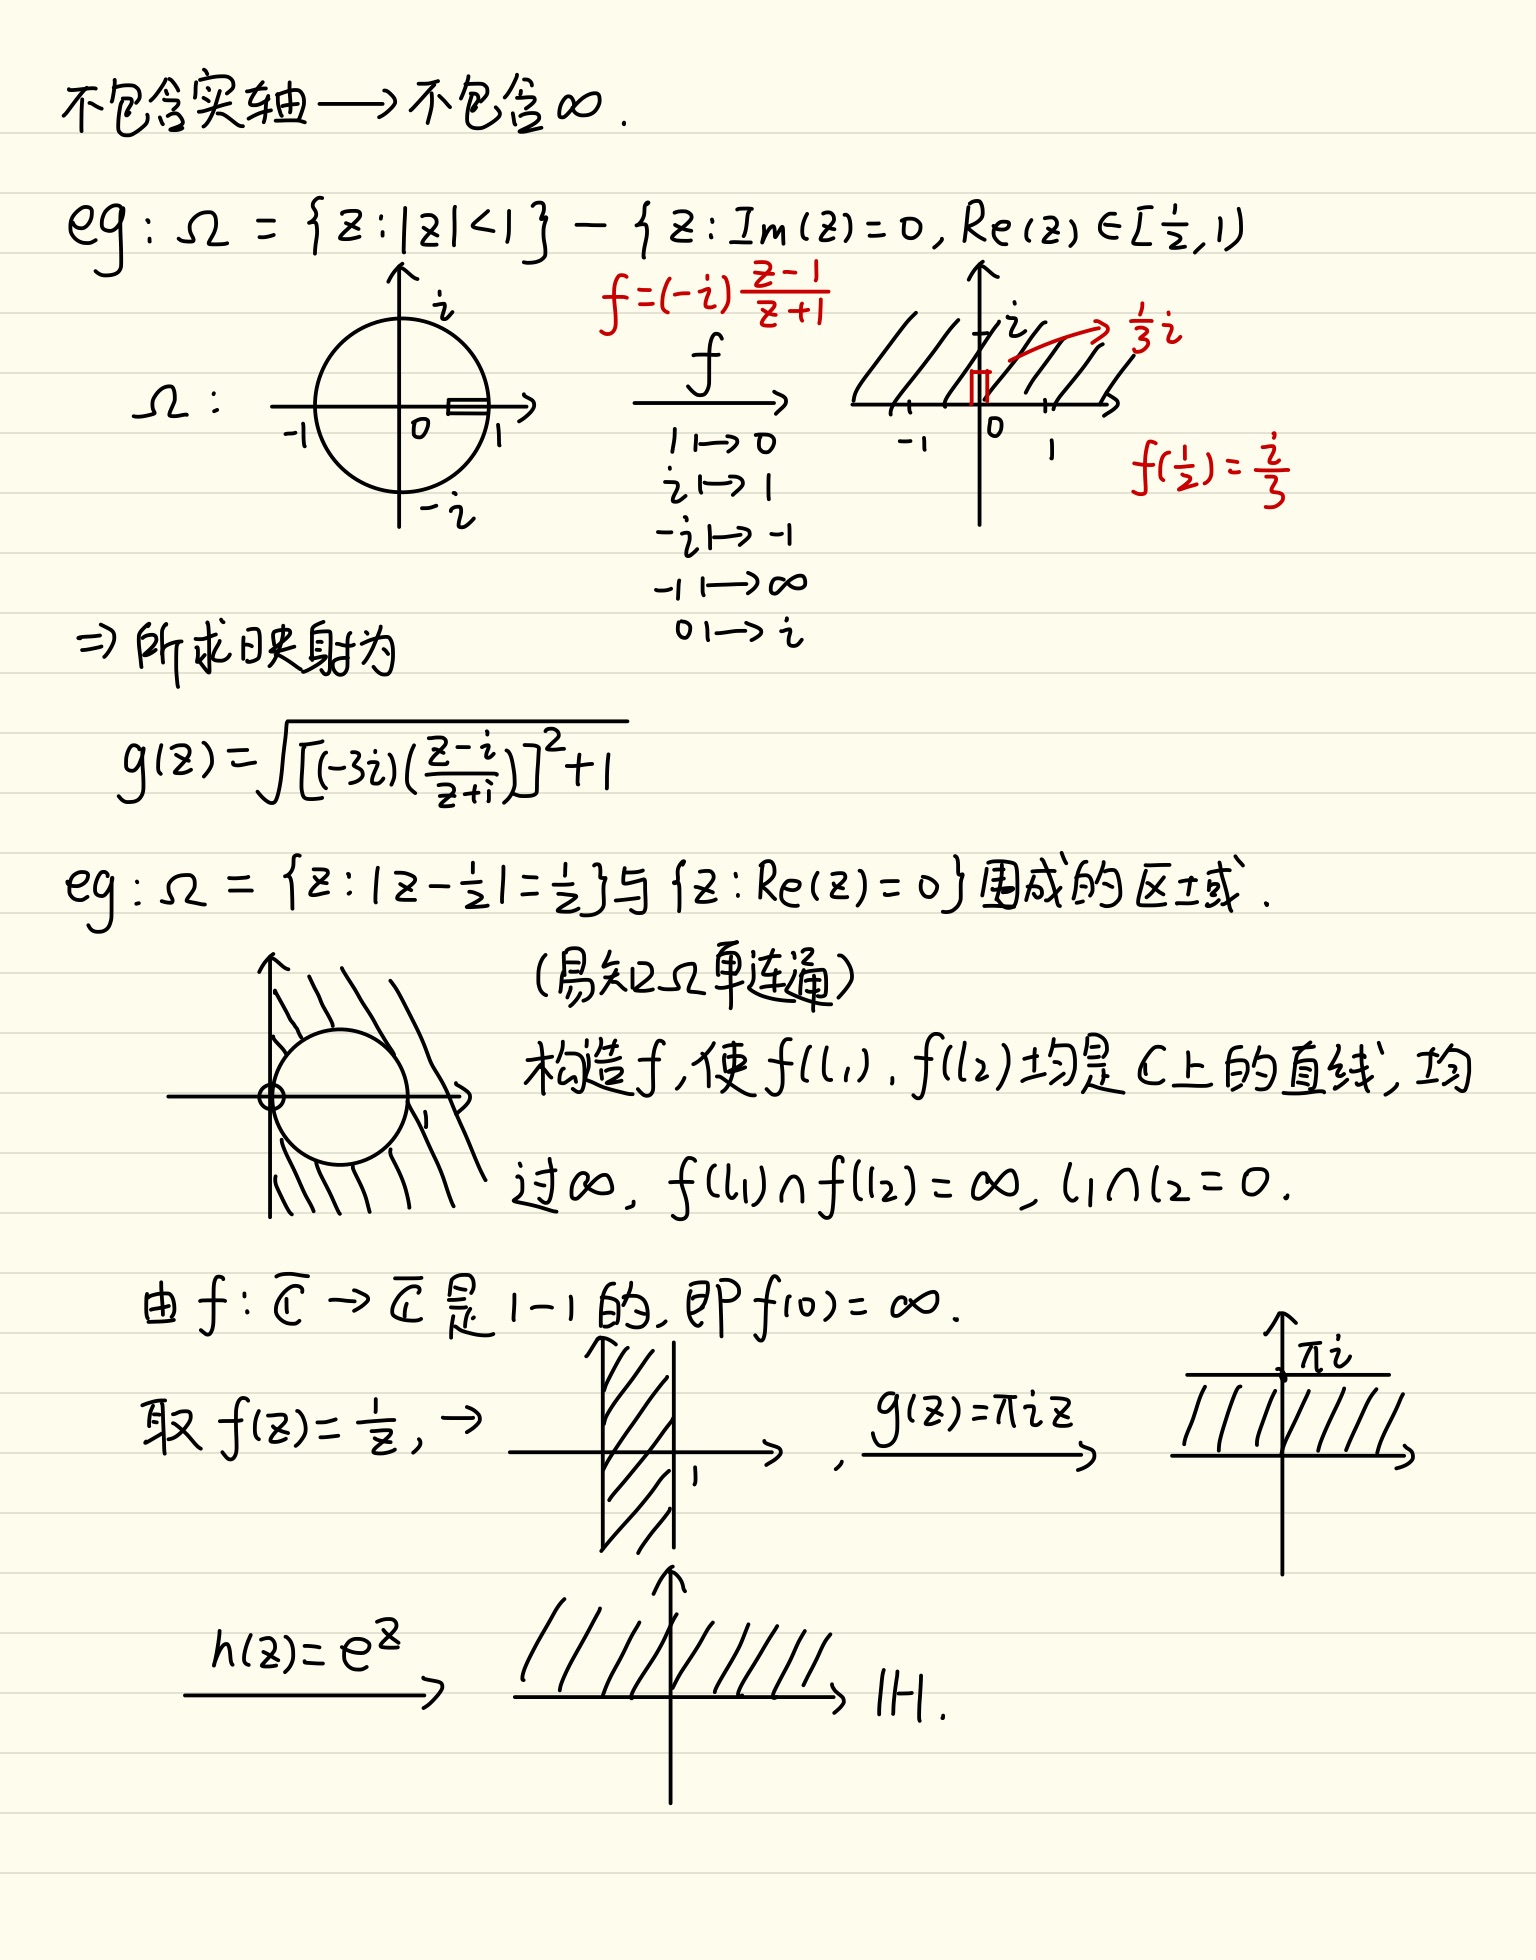 不包含实轴 → 不包含∞.
eg: Ω = {z:|z|<1} - {z: Im(z)=0, Re(z)∈[1/2,1)
f=(-i) (z-1)/(z+1)
Ω:
i
-1
0
1
-i
f
1 ↦ 0
i ↦ 1
-i ↦ -1
-1 ↦ ∞
0 ↦ i
i
1/3 i
-1
0
1
f(1/2) = i/3
⇒ 所求映射为
g(z) = √([(-3i)((z-i)/(z+i))]²+1)
eg: Ω = {z:|z-1/2|=1/2}与{z:Re(z)=0}围成的区域.
(易知Ω单连通)
1
构造f,使f(l₁), f(l₂)均是ℂ上的直线,均
过∞, f(l₁)∩f(l₂)=∞, l₁∩l₂=0.
由 f: ℂ̅ → ℂ̅ 是1-1的,即f(0)=∞.
取 f(z)=1/z, →
1
, g(z)=πiz
πi
h(z)=e^z
ℍ.